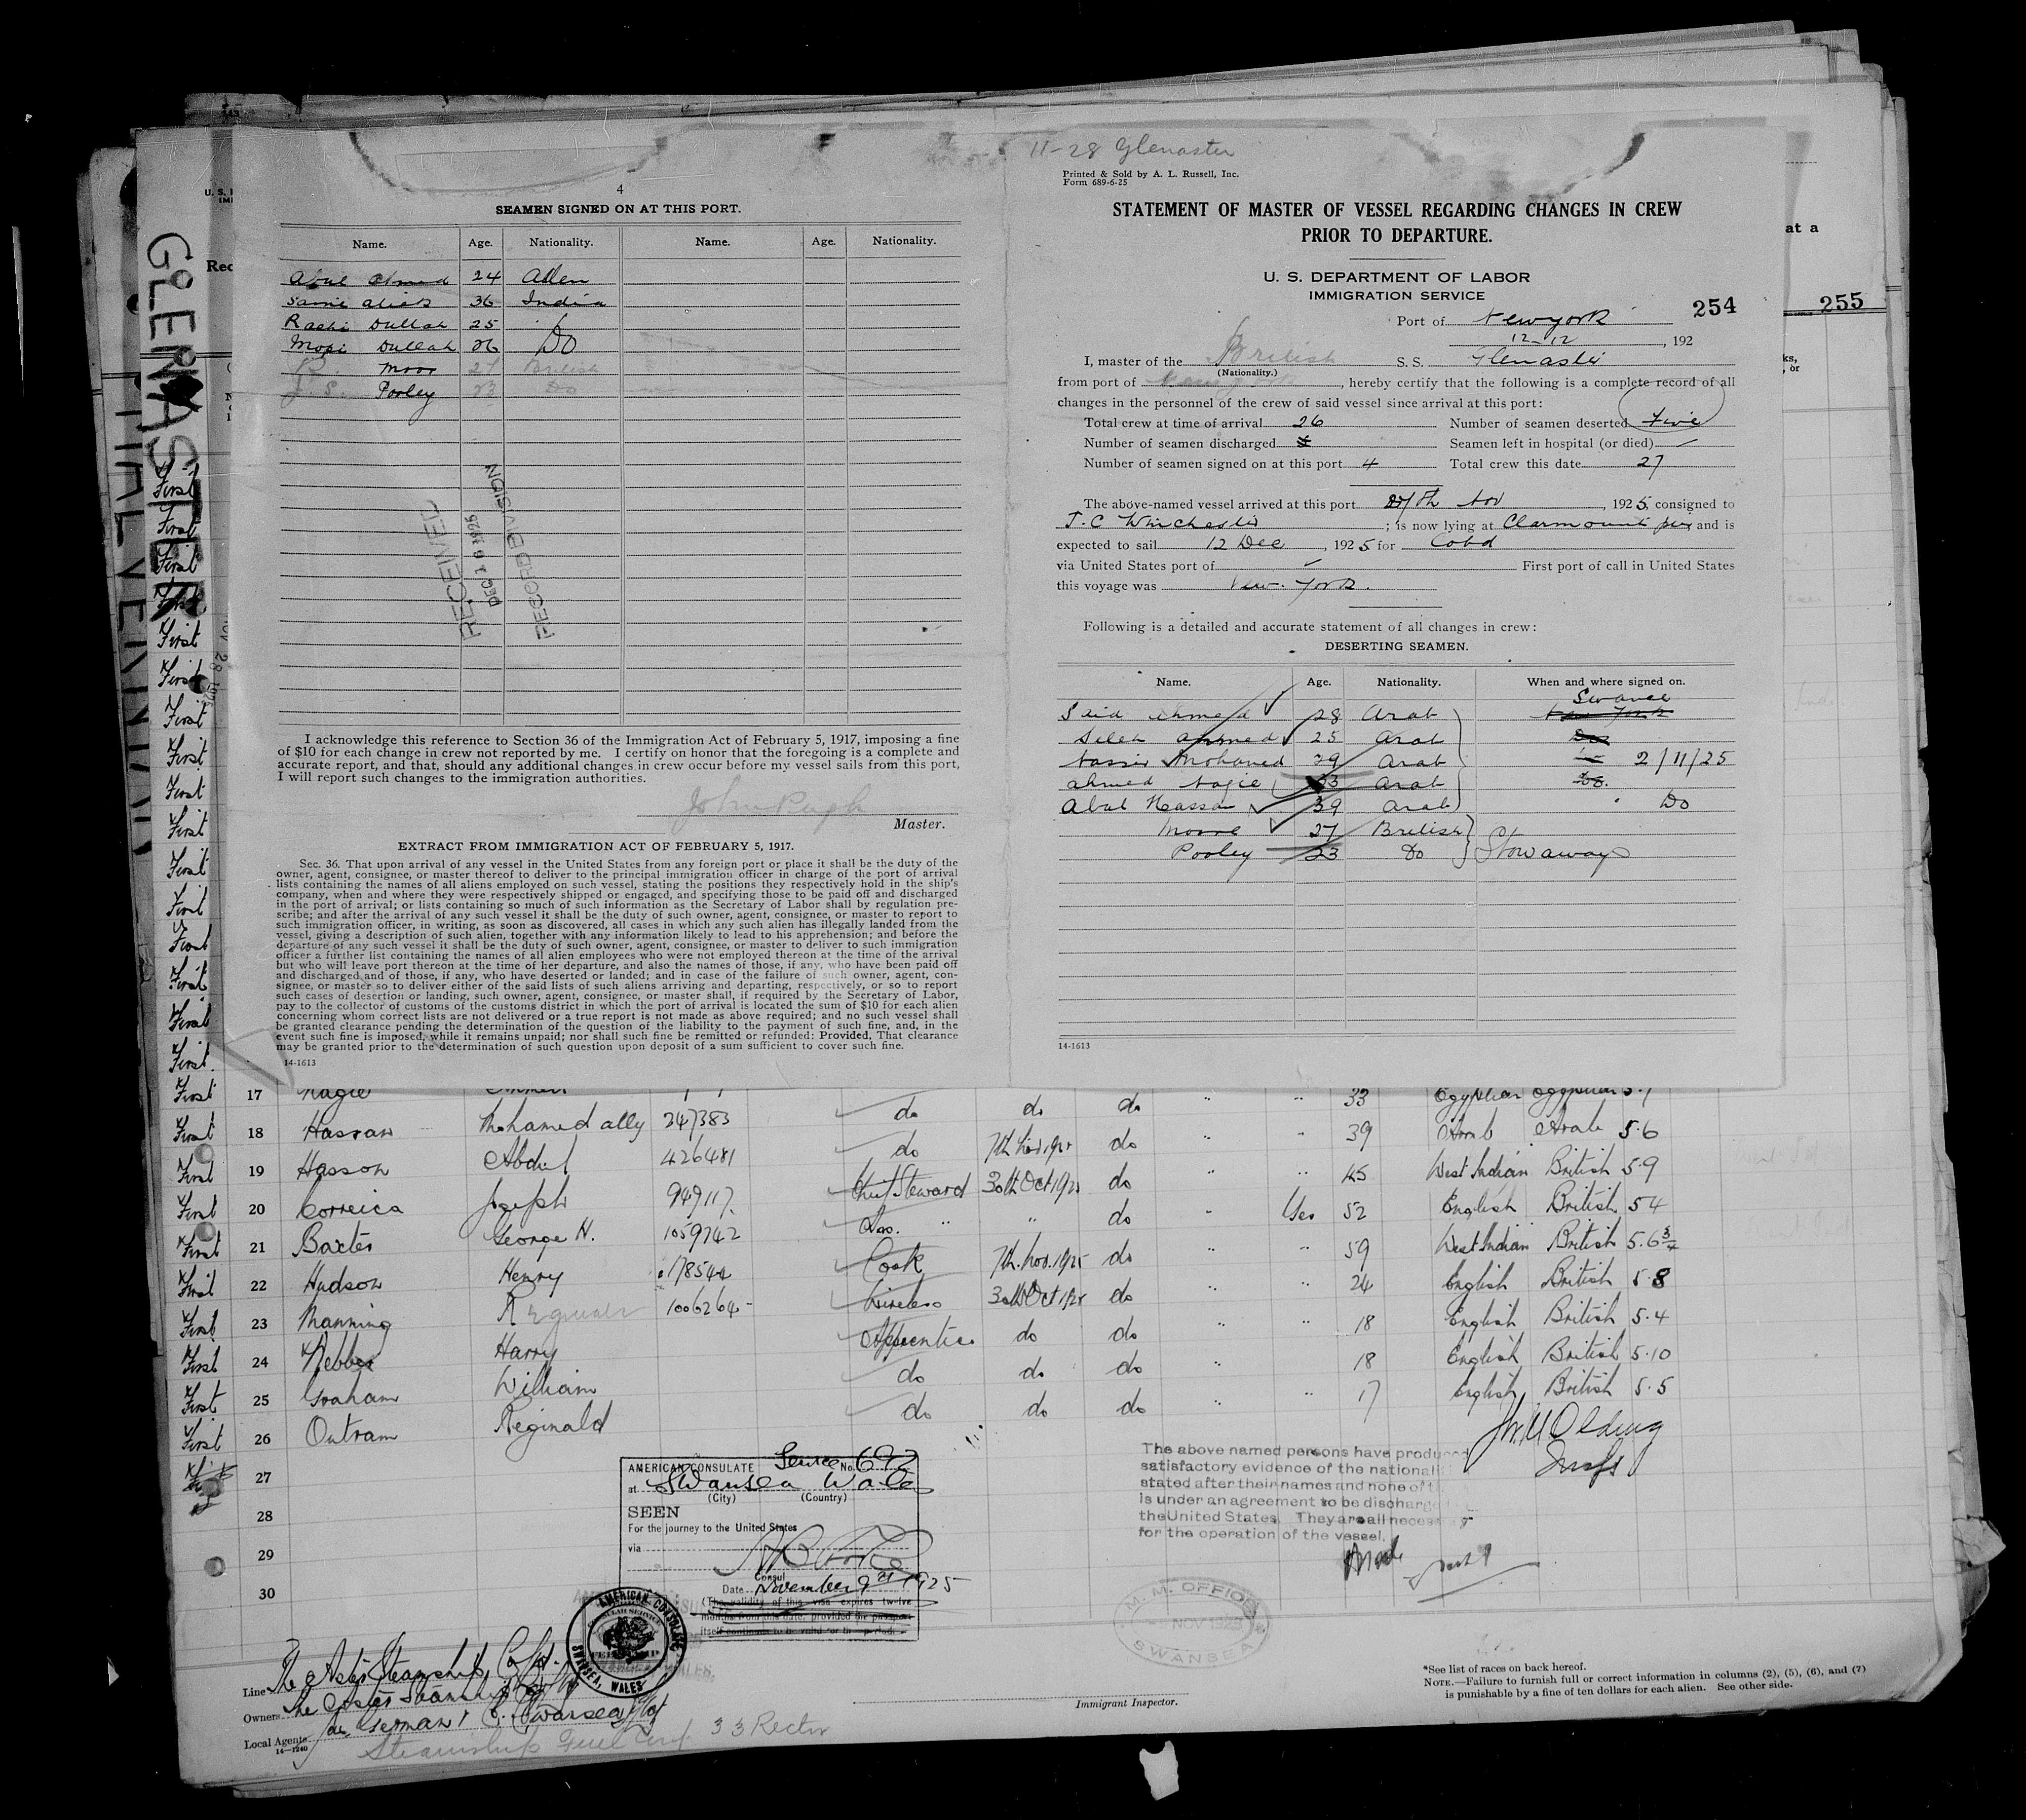 4
SEAMEN SIGNED ON AT THIS PORT.
Name. Age. Nationality. Name. Age. Nationality.
Abul Ahmed 24 Aden
36 India
Dullah 25
Dullah 26 Do
Moor 27 British
J. S. Pooley 23 Do
RECEIVED
DEC 1 6 1925
RECORD DIVISION
I acknowledge this reference to Section 36 of the Immigration Act of February 5, 1917, imposing a fine
of $10 for each change in crew not reported by me. I certify on honor that the foregoing is a complete and
accurate report, and that, should any additional changes in crew occur before my vessel sails from this port,
I will report such changes to the immigration authorities.
John Pugh
Master.
EXTRACT FROM IMMIGRATION ACT OF FEBRUARY 5, 1917.
Sec. 36. That upon arrival of any vessel in the United States from any foreign port or place it shall be the duty of the
owner, agent, consignee, or master thereof to deliver to the principal immigration officer in charge of the port of arrival
lists containing the names of all aliens employed on such vessel, stating the positions they respectively hold in the ship's
company, when and where they were respectively shipped or engaged, and specifying those to be paid off and discharged
in the port of arrival; or lists containing so much of such information as the Secretary of Labor shall by regulation pre-
scribe; and after the arrival of any such vessel it shall be the duty of such owner, agent, consignee, or master to report to
such immigration officer, in writing, as soon as discovered, all cases in which any such alien has illegally landed from the
vessel, giving a description of such alien, together with any information likely to lead to his apprehension; and before the
departure of any such vessel it shall be the duty of such owner, agent, consignee, or master to deliver to such immigration
officer a further list containing the names of all alien employees who were not employed thereon at the time of the arrival
but who will leave port thereon at the time of her departure, and also the names of those, if any, who have been paid off
and discharged, and of those, if any, who have deserted or landed; and in case of the failure of such owner, agent, con-
signee, or master so to deliver either of the said lists of such aliens arriving and departing, respectively, or so to report
such cases of desertion or landing, such owner, agent, consignee, or master shall, if required by the Secretary of Labor,
pay to the collector of customs of the customs district in which the port of arrival is located the sum of $10 for each alien
concerning whom correct lists are not delivered or a true report is not made as above required; and no such vessel shall
be granted clearance pending the determination of the question of the liability to the payment of such fine, and, in the
event such fine is imposed, while it remains unpaid; nor shall such fine be remitted or refunded: Provided, That clearance
may be granted prior to the determination of such question upon deposit of a sum sufficient to cover such fine.
14-1613
11-28 Glenaster
Printed & Sold by A. L. Russell, Inc.
Form 689-6-25
STATEMENT OF MASTER OF VESSEL REGARDING CHANGES IN CREW
PRIOR TO DEPARTURE.
U. S. DEPARTMENT OF LABOR
IMMIGRATION SERVICE
254
255
Port of New York
12-12, 192
I, master of the British S. S. Glenaster
(Nationality.)
from port of , hereby certify that the following is a complete record of all
changes in the personnel of the crew of said vessel since arrival at this port:
Total crew at time of arrival 26 Number of seamen deserted Five
Number of seamen discharged Seamen left in hospital (or died)
Number of seamen signed on at this port 4 Total crew this date 27
The above-named vessel arrived at this port 27th Nov, 1925, consigned to
J. C Winchester; is now lying at Clarmount pier and is
expected to sail 12 Dec, 1925 for
via United States port of First port of call in United States
this voyage was New-York.
Following is a detailed and accurate statement of all changes in crew:
DESERTING SEAMEN.
Name. Age. Nationality. When and where signed on.
Said Ahmed 28 Arab Swansea New York
Saleh Ahmed 25 Arab Do
Nassir Mohamed 29 Arab 2/11/25
Ahmed Nagie 33 Arab do.
Abul Hassan 39 Arab Do
Moore 27 British
Pooley 23 Do Stowaways
14-1613
GLENASTER
First
17 Nagie Ahmed 33 Egyptian Egyptian 5.7
18 Hassan Mohamed ally 247383 do do do 39 Arab Arab 5.6
19 Hasson Abdul 426481 do 7th Nov 1925 do 45 West Indian British 5.9
20 Correica Joseph 949117 Chief Steward 30th Oct 1925 do Yes 52 English British 5 4
21 Baxter George H. 1059742 " do 59 West Indian British 5.6¾
22 Hudson Henry 178544 Cook 7th. Nov. 1925 do 24 English British 5.8
23 Manning 1006264 Wireless 30th Oct 1925 do 18 English British 5.4
24 Webber Harry Apprentice do do 18 English British 5.10
25 Graham William do do do 17 English British 5.5
26 Outram Reginald do do do
27
28
29
30
AMERICAN CONSULATE Service No. 692
at Swansea Wales
(City) (Country)
SEEN
For the journey to the United States
via
Consul
Date November 9th 1925
(The validity of this visa expires twelve
months from this date, provided the passport
itself continues to be valid for that period.)
AMERICAN CONSULATE
SWANSEA, WALES
The above named persons have produced
satisfactory evidence of the nationali
stated after their names and none of t
is under an agreement to be discharg
the United States. They are all necess
for the operation of the vessel.
M. M. OFFICE
NOV 1925
SWANSEA
Line The Aster Steamship Co.
Owners The Aster Steamship
Local Agents Swansea
14-1240
Steamship Fuel Corp. 33 Rector
Immigrant Inspector.
*See list of races on back hereof.
NOTE.—Failure to furnish full or correct information in columns (2), (5), (6), and (7)
is punishable by a fine of ten dollars for each alien. See other side.